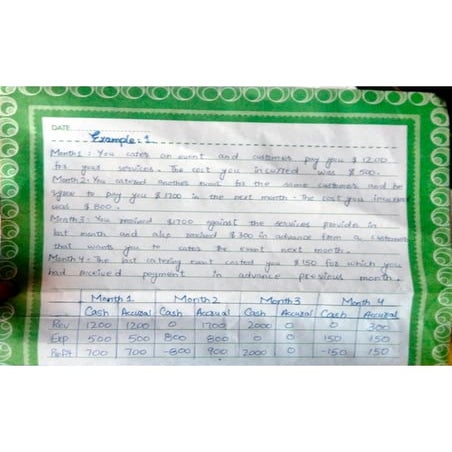 DATE
Example: 1
Month 1: You cater an event and customer pay you $ 1200
for your services. The cost you incurred was $ 500.
Month 2: You catered another event for the same customer and he
agree to pay you $ 1700 in the next month. The cost you
was $ 800.
Month 3: You received $ 1700 against the services provide in
last month and also received $ 300 in advance from a customer
that wants you to cater the event next month.
Month 4: The last catering event costed you $ 150 for which you
had received payment in advance previous month.
Month 1 Month 2 Month 3 Month 4
Cash Accural Cash Accural Cash Accural Cash Accural
Rev 1200 1200 0 1700 2000 0 0 300
Exp 500 500 800 800 0 0 150 150
Profit 700 700 -800 900 2000 0 -150 150